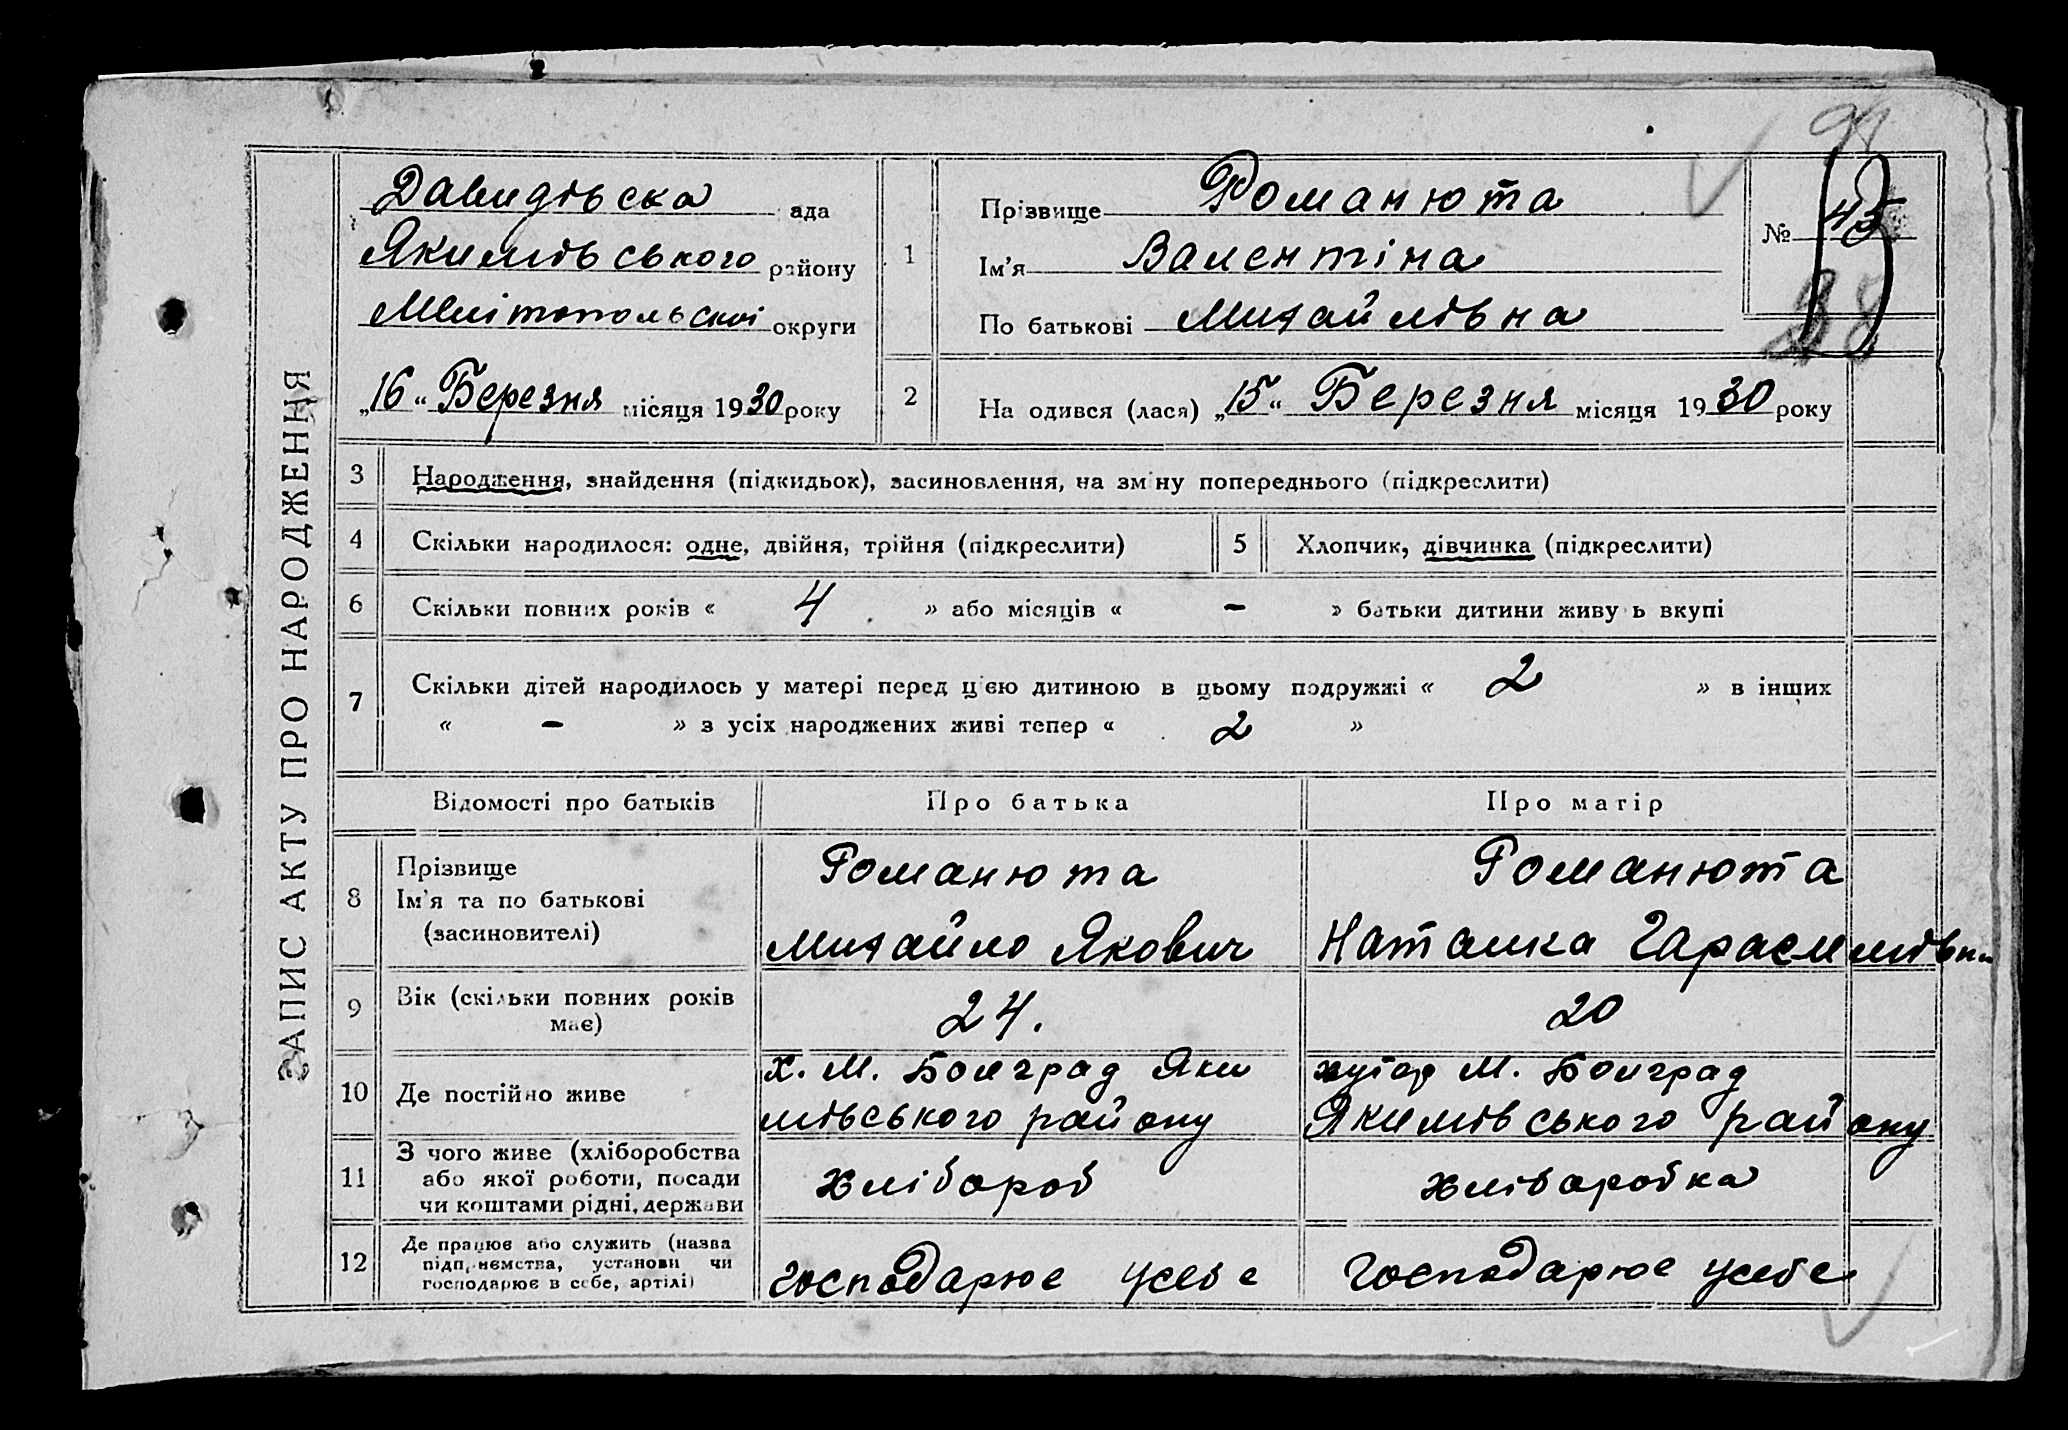 ЗАПИС АКТУ ПРО НАРОДЖЕННЯ
Давидівська ада
Якимівського району
Мелітопольскої округи
„16“ Березня місяця 1930 року
1
Прізвище Романюта
Ім'я Валентіна
По батькові Михайлівна
№ 45
38
2 На одився (лася) „15“ Березня місяця 1930 року
3 Народження, знайдення (підкидьок), засиновлення, на зміну попереднього (підкреслити)
4 Скільки народилося: одне, двійня, трійня (підкреслити) 5 Хлопчик, дівчинка (підкреслити)
6 Скільки повних років « 4 » або місяців « - » батьки дитини живу ь вкупі
7 Скільки дітей народилось у матері перед цією дитиною в цьому подружжі « 2 » в інших
« - » з усіх народжених живі тепер « 2 »
Відомості про батьків Про батька Про матір
8 Прізвище
Ім'я та по батькові
(засиновителі)
Романюта
Михайло Якович
Романюта
Наталка Гарасимівна
9 Вік (скільки повних років
має)
24.
20
10 Де постійно живе
х. М. Болград Яки
мівського району
хутор М. Болград
Якимівського району
11 З чого живе (хліборобства
або якої роботи, посади
чи коштами рідні, держави
хлібороб
хліборобка
12 Де працює або служить (назва
підприємства, установи чи
господарює в себе, артілі)
господарює усебе
господарює усебе